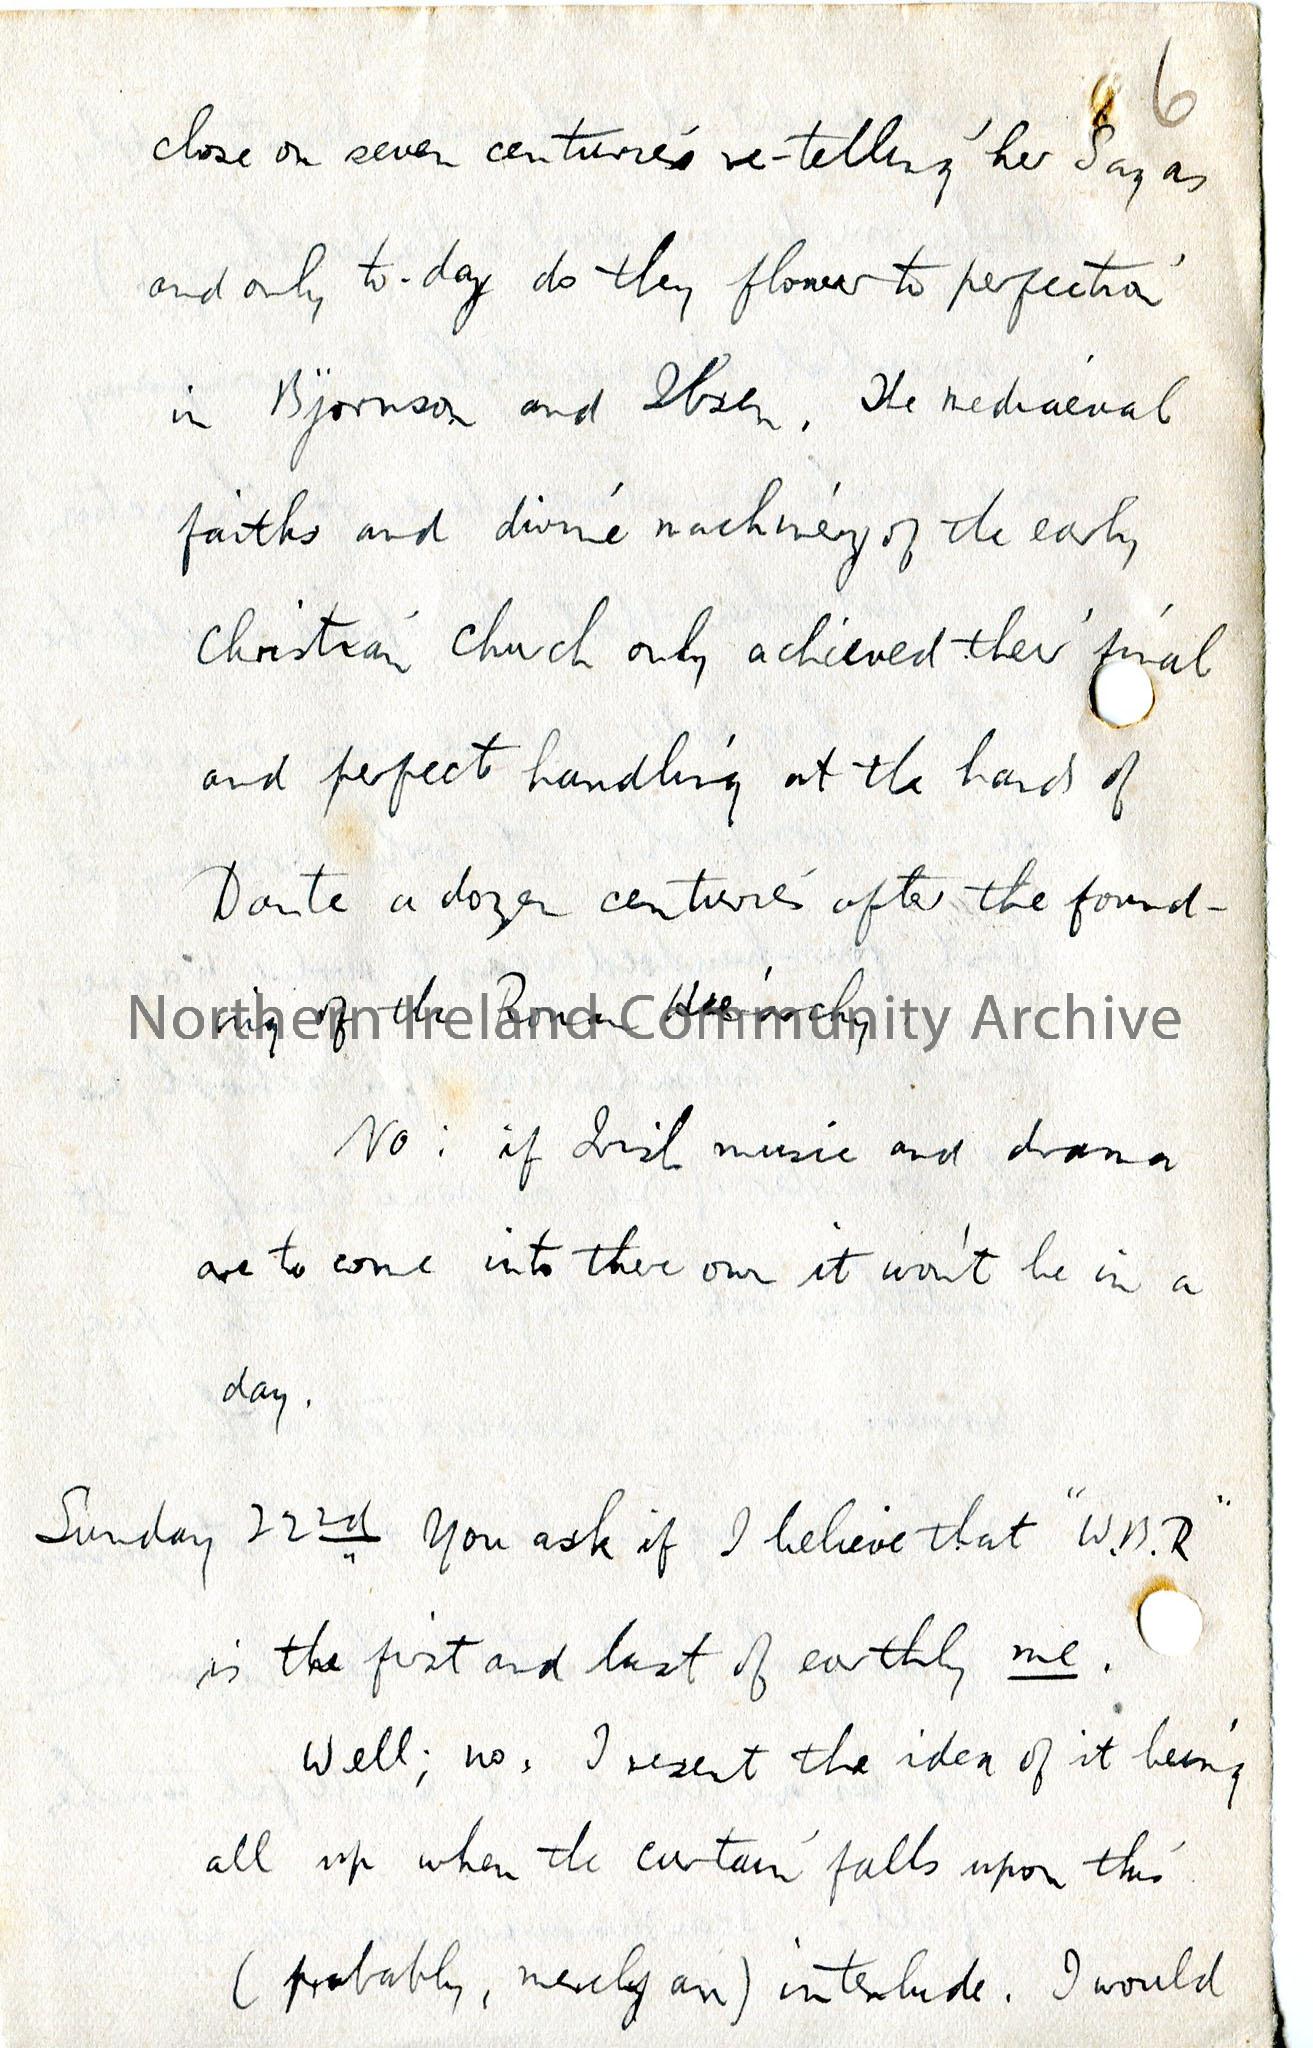 6
close on seven centuries re-telling her Sagas
and only to-day do they flower to perfection
in Björnson and Ibsen. The mediaeval
faiths and divine machinery of the early
Christian Church only achieved their final
and perfect handling at the hands of
Dante a dozen centuries after the found-
ing of the Roman Hierarchy.
Northern Ireland Community Archive
No: if Irish music and drama
are to come into there own it won't be in a
day.
Sunday 22nd You ask if I believe that "W.B.R"
is the first and last of earthly me.
Well; no. I resent the idea of it being
all up when the curtain falls upon this
(probably, merely an) interlude. I would